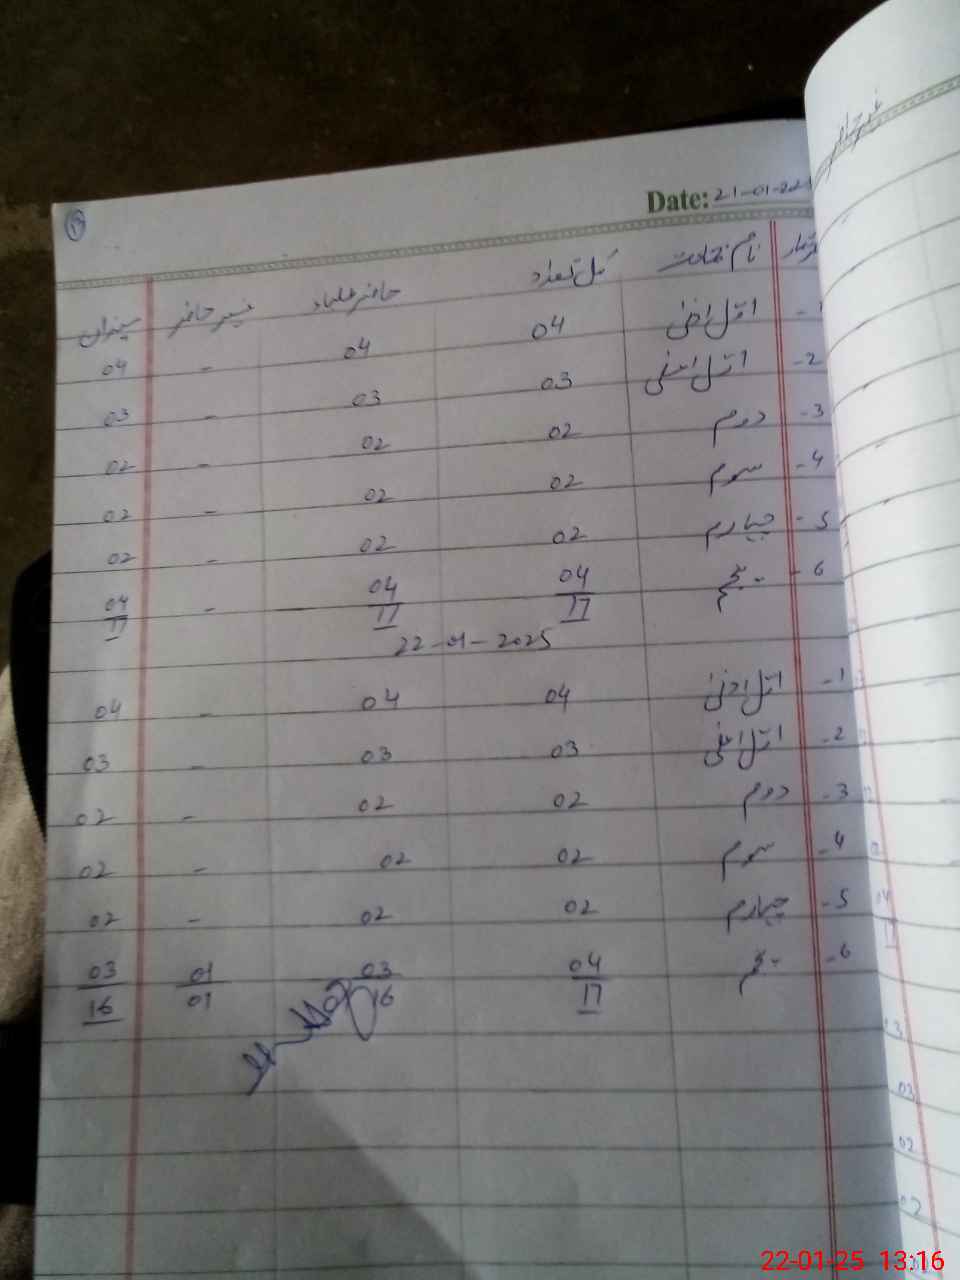 Date: 21-01-202
نام جماعت کل تعداد حاضر طلباء غیر حاضر میزان
1- اول ادنیٰ 04 04 - 04
2- اول اعلیٰ 03 03 - 03
3- دوم 02 02 - 02
4- سوم 02 02 - 02
5- چہارم 02 02 - 02
6- پنجم 04 04 - 04
17 17 17
22-01-2025
1- اول ادنیٰ 04 04 - 04
2- اول اعلیٰ 03 03 - 03
3- دوم 02 02 - 02
4- سوم 02 02 - 02
5- چہارم 02 02 - 02
6- پنجم 04 03 01 03
17 16 01 16
غیر حاضر
04
17
03
02
02
22-01-25 13:16